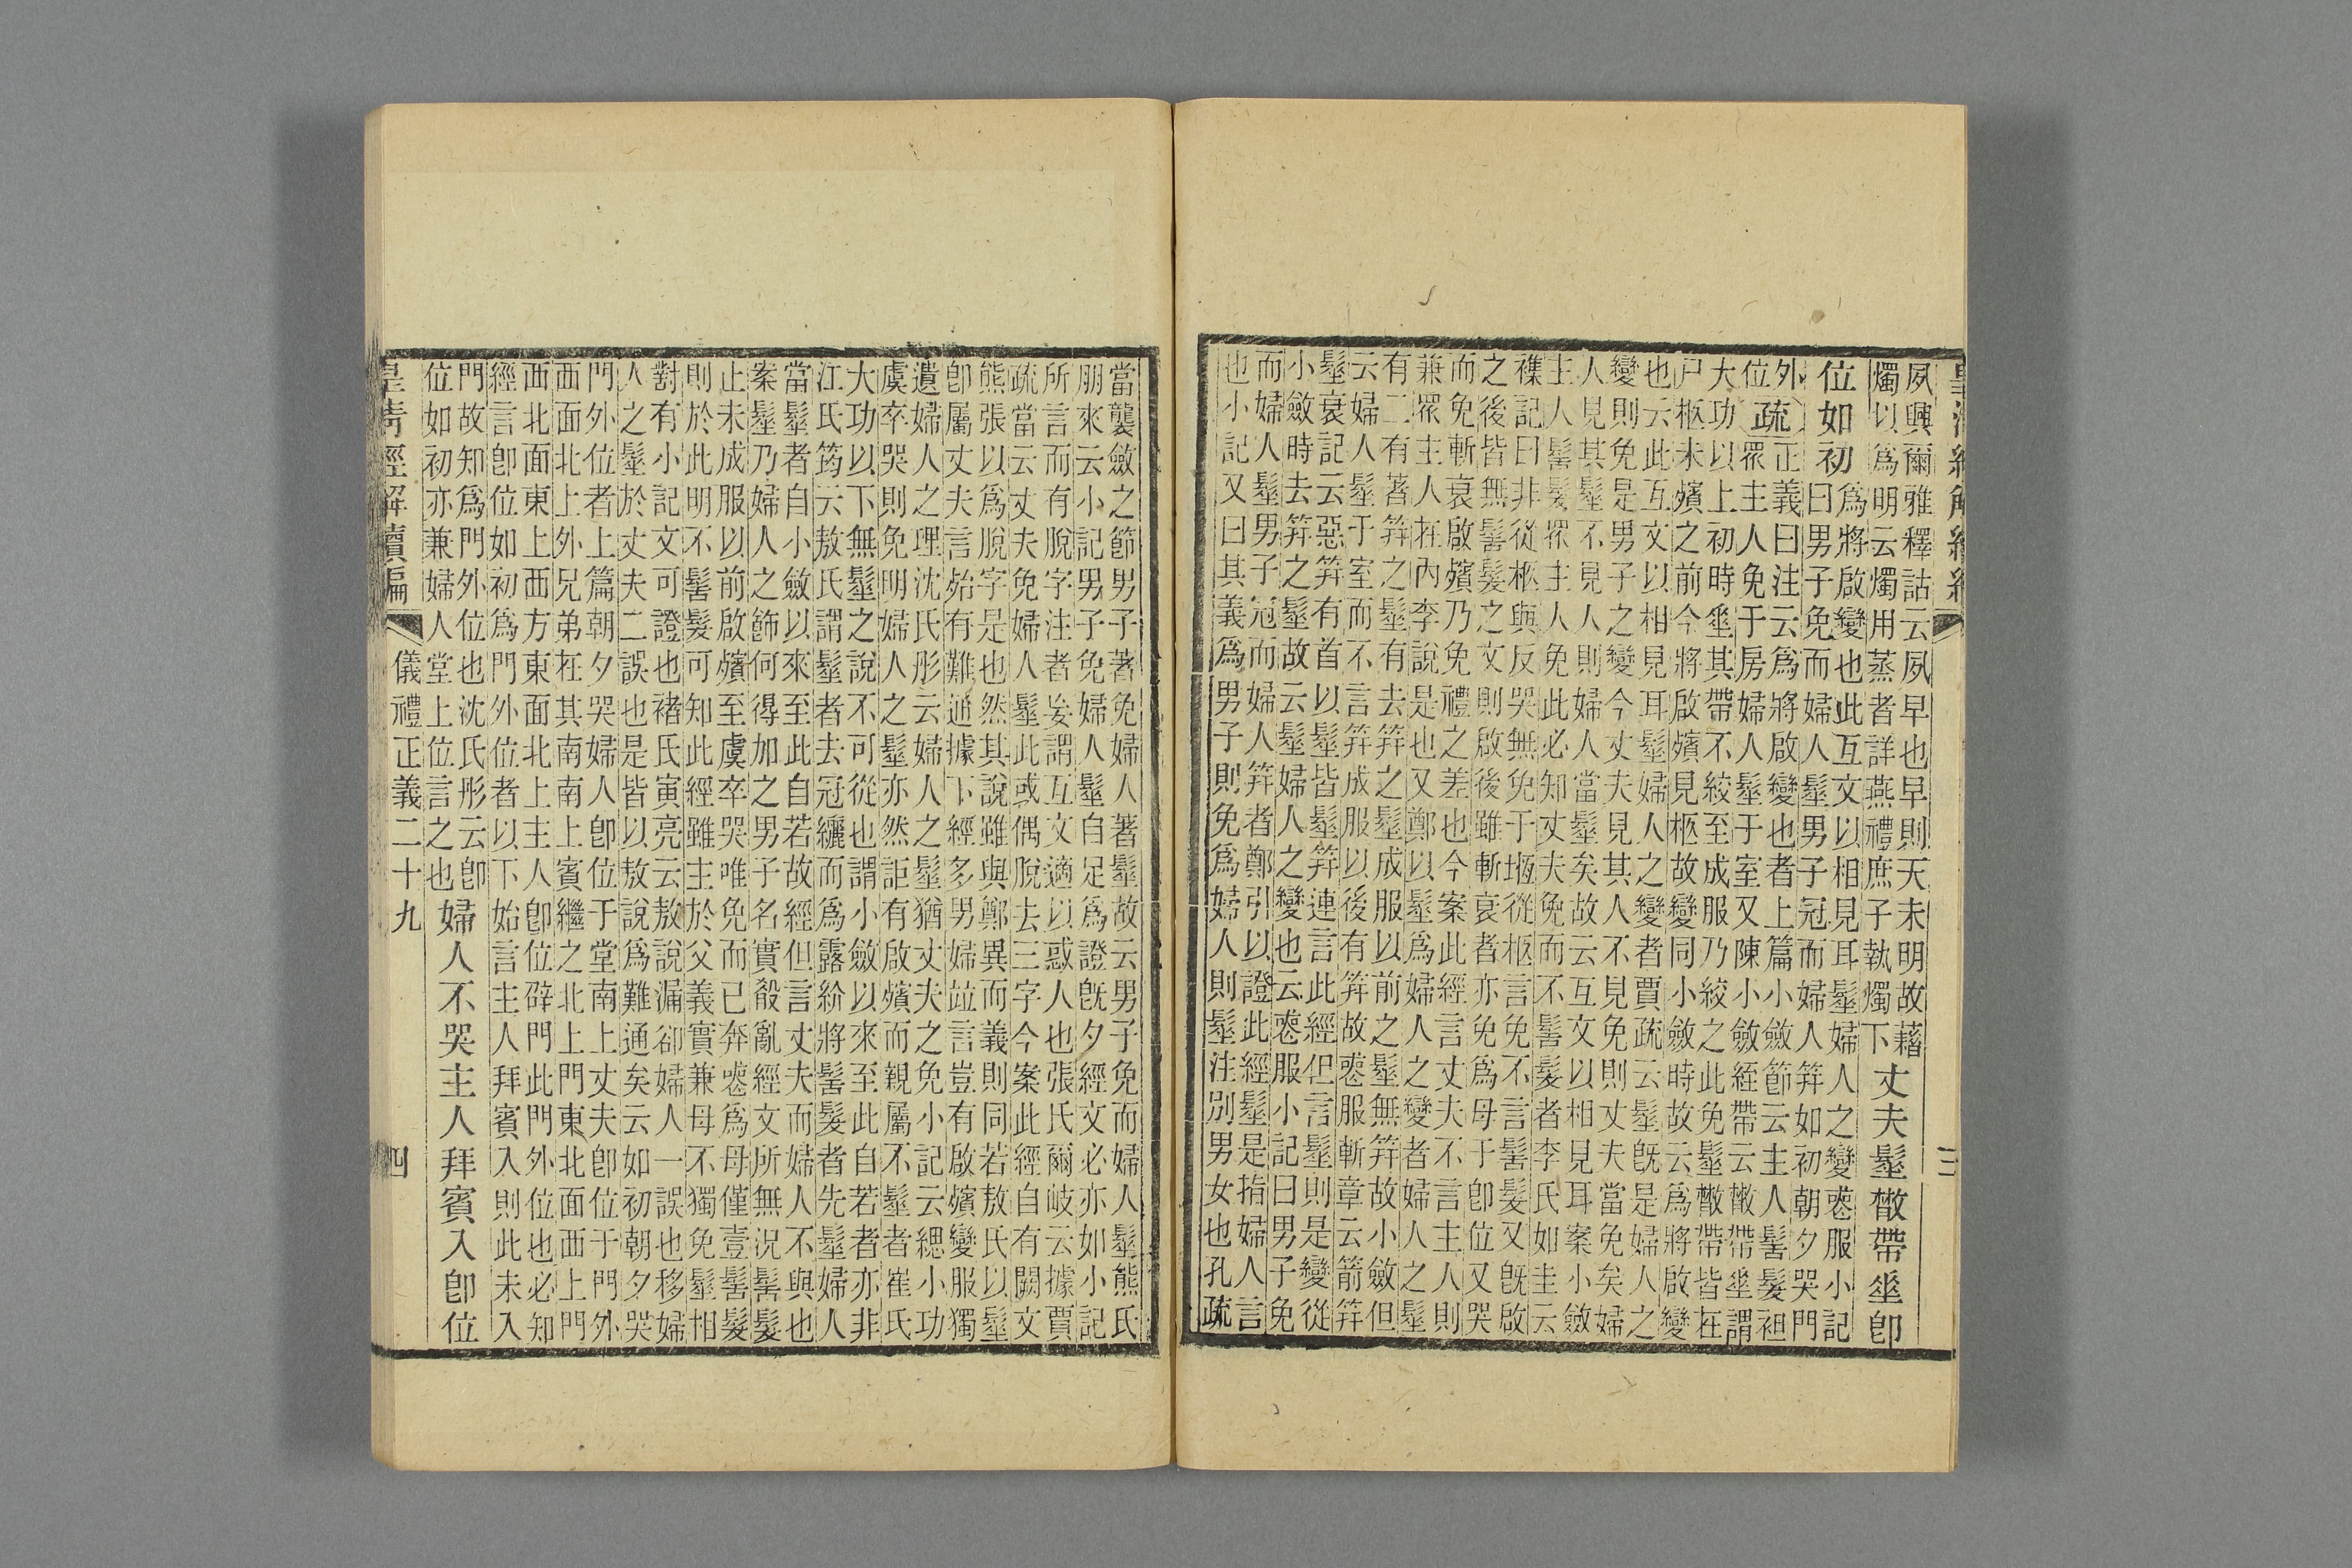 夙興爾雅釋詁云夙早也早則天未明故藉
燭以爲明云燭用蒸者詳燕禮庶子執燭下丈夫髽散帶垂卽
位如初爲將啟變也此互文以相見耳髽婦人之變喪服小記
曰男子免而婦人髽男子冠而婦人筓如初朝夕哭門
外疏正義曰注云爲將啟變也者上篇小斂節云主人髻髮袒
位衆主人免于房婦人髽于室又陳小斂絰帶云散帶垂謂
大功以上初時垂其帶不絞至成服乃絞之此免髽散帶皆在
尸柩未殯之前今將啟殯見柩故變同小斂時故云爲將啟變
也云此互文以相見耳髽婦人之變者賈疏云髽旣是婦人之
變則免是男子之變今丈夫見其人不見免則丈夫當免矣婦
人見其髽不見人則婦人當髽矣故云互文以相見耳案小斂
主人髻髮衆主人免此必知丈夫免而不髻髮者李氏如圭云
襍記曰非從柩與反哭無免于堩從柩言免不言髻髮又旣啟
之後皆無髻髮之文則啟後雖斬衰者亦免爲母于卽位又哭
而免斬衰啟殯乃免禮之差也今案此經言丈夫不言主人則
兼衆主人在內李說是也又鄭以髽爲婦人之變者婦人之髽
有二有著筓之髽有去筓之髽成服以前之髽無筓故小斂但
云婦人髽于室而不言筓成服以後有筓故喪服斬章云箭筓
髽衰記云惡筓有首以髽皆髽筓連言此經但言髽則是變從
小斂時去筓之髽故云髽婦人之變也云喪服小記曰男子免
而婦人髽男子冠而婦人筓者鄭引以證此經髽是指婦人言
也小記又曰其義爲男子則免爲婦人則髽注別男女也孔疏
當襲斂之節男子著免婦人著髽故云男子免而婦人髽熊氏
朋來云小記男子免婦人髽自足爲證旣夕經文必亦如小記
所言而有脫字注者妄謂互文適以惑人也張氏爾岐云據賈
疏當云丈夫免婦人髽此或偶脫去三字今案此經自有闕文
熊張以爲脫字是也然其說雖與鄭異而義則同若敖氏以髽
卽屬丈夫言殆有難通據下經多男婦竝言豈有啟殯變服獨
遺婦人之理沈氏彤云婦人之髽猶丈夫之免小記云緦小功
虞卒哭則免明婦人之髽亦然詎有啟殯而親屬不髽者崔氏
大功以下無髽之說不可從也謂小斂以來至此自若髽者亦非
江氏筠云敖氏謂髽者去冠纚而爲露紒將髻髮者先髽婦人
當髽者自小斂以來至此自若故經但言丈夫而婦人不與也
案髽乃婦人之飾何得加之男子名實殽亂經文所無況髻髮
止未成服以前啟殯至虞卒哭唯免而已奔喪爲母僅壹髻髮
則於此明不髻髮可知此經雖主於父義實兼母不獨免髽相
對有小記文可證也褚氏寅亮云敖說漏卻婦人一誤也移婦
人之髽於丈夫二誤也是皆以敖說爲難通矣云如初朝夕哭
門外位者上篇朝夕哭婦人卽位于堂南上丈夫卽位于門外
西面北上外兄弟在其南南上賓繼之北上門東北面西上門
西北面東上西方東面北上主人卽位辟門此門外位也必知
經言卽位如初爲門外位者以下始言主人拜賓入則此未入
門故知爲門外位也沈氏彤云卽婦人不哭主人拜賓入卽位
位如初亦兼婦人堂上位言之也
皇清經解續編
儀禮正義二十九
四
三